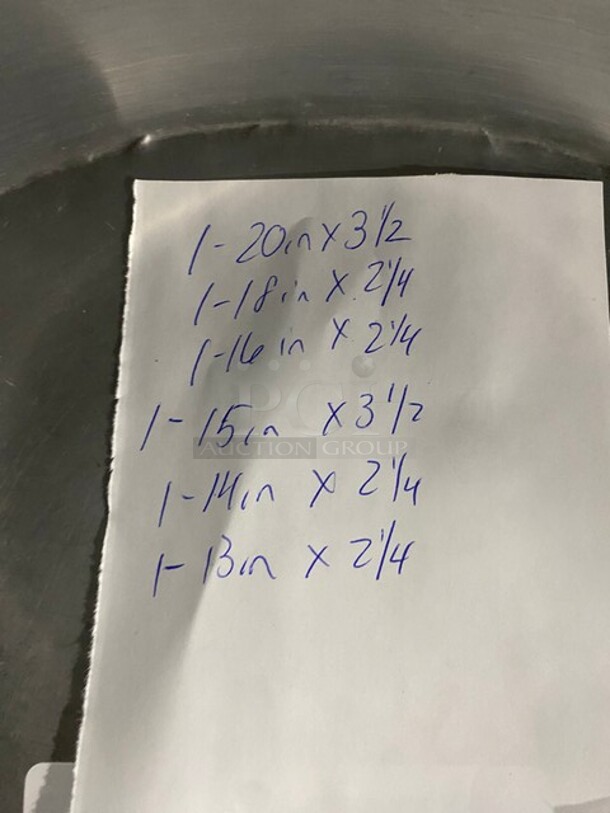 1-20in x 3 1/2
1-18in x 2 1/4
1-16 in x 2 1/4
1-15in x 3 1/2
1-14in x 2 1/4
1-13in x 2 1/4
PCI
AUCTION GROUP